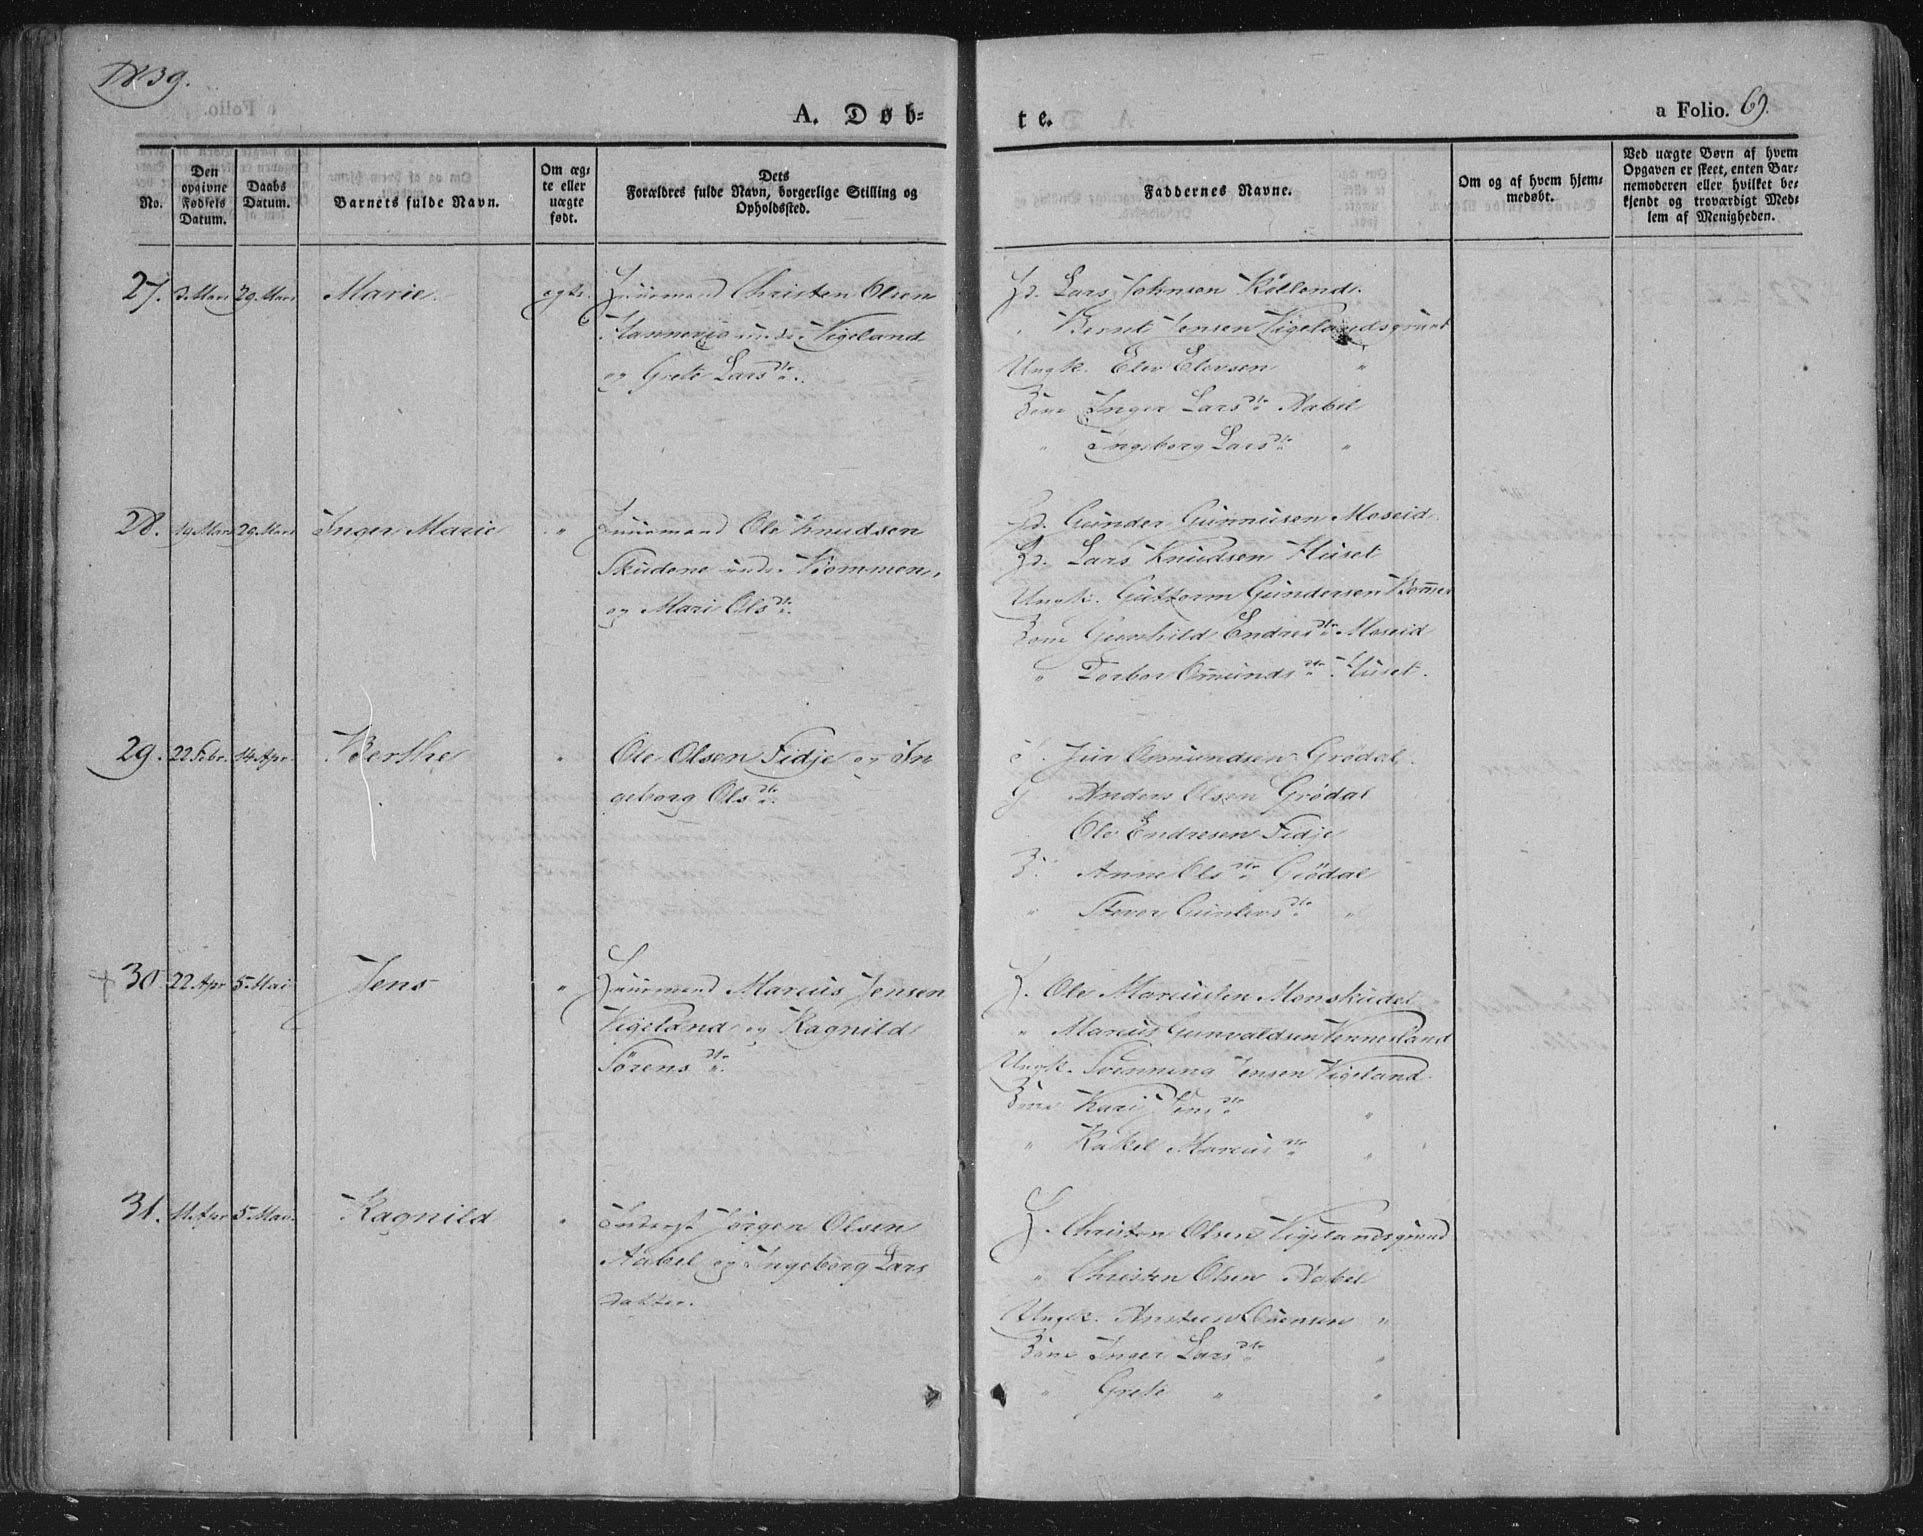 1839.
A. Døb-
te.
a Folio. 69.
No.
Den opgivne Fødsels Datum.
Daabs Datum.
Barnets fulde Navn.
Om ægte eller uægte født.
Dets Forældres fulde Navn, borgerlige Stilling og Opholdssted.
Faddernes Navne.
Om og af hvem hjemmedøbt.
Ved uægte Børn af hvem Opgaven er skeet, enten Barnemoderen eller hvilket bekjendt og troværdigt Medlem af Menigheden.
27. 3 Mars 29. Mars Marie. ægte. Huusmand Christen Olsen
under Vigeland
og Grete Larsdtr.
Gd. Lars Johnsen Kolland.
" Bernt Jensen Vigelandsgrund
Ungk. Elev Elevsen "
Kone Inger Larsdtr Aabel
" Ingeborg Larsdtr "
28. 19 Mars 29 Mars Inger Marie " Huusmand Ole Knudsen
Skudene under Kommen,
og Mari Olsdtr.
Gd. Gunder Gunnusen Moseid.
Gd. Lars Knudsen Huset
Ungk. Guttorm Gundersen
Kone Gunhild Endresdtr Moseid
" Torbor Omundsdtr Huset.
29. 22 Febr. 14 Apr. Berthe " Ole Olsen Fidje og In
geborg Olsdtr.
Omundsen Grødal.
G Anders Olsen Grødal
Ole Endresen Fidje
K. Anne Olsdtr Grødal
" Gunlevsdtr "
30 22 Apr 5 Mai Jens " Huusmand Marcus Jensen
Vigeland og Ragnild
Sørensdtr.
H. Ole Marcussen Monskudet
" Marcus Gunvaldsen Vennesland
Ungk. Svenning Jensen Vigeland.
Kone Kari Jensdtr "
" Rakel Marcusdtr "
31. 11 Apr 5 Mai. Ragnild " Inderst Jørgen Olsen
Aabel og Ingeborg Lars
datter.
H. Christen Olsen Vigelandsgrund
" Christen Olsen Aabel
Ungk. "
Kone Inger Larsdtr "
" Grete " "